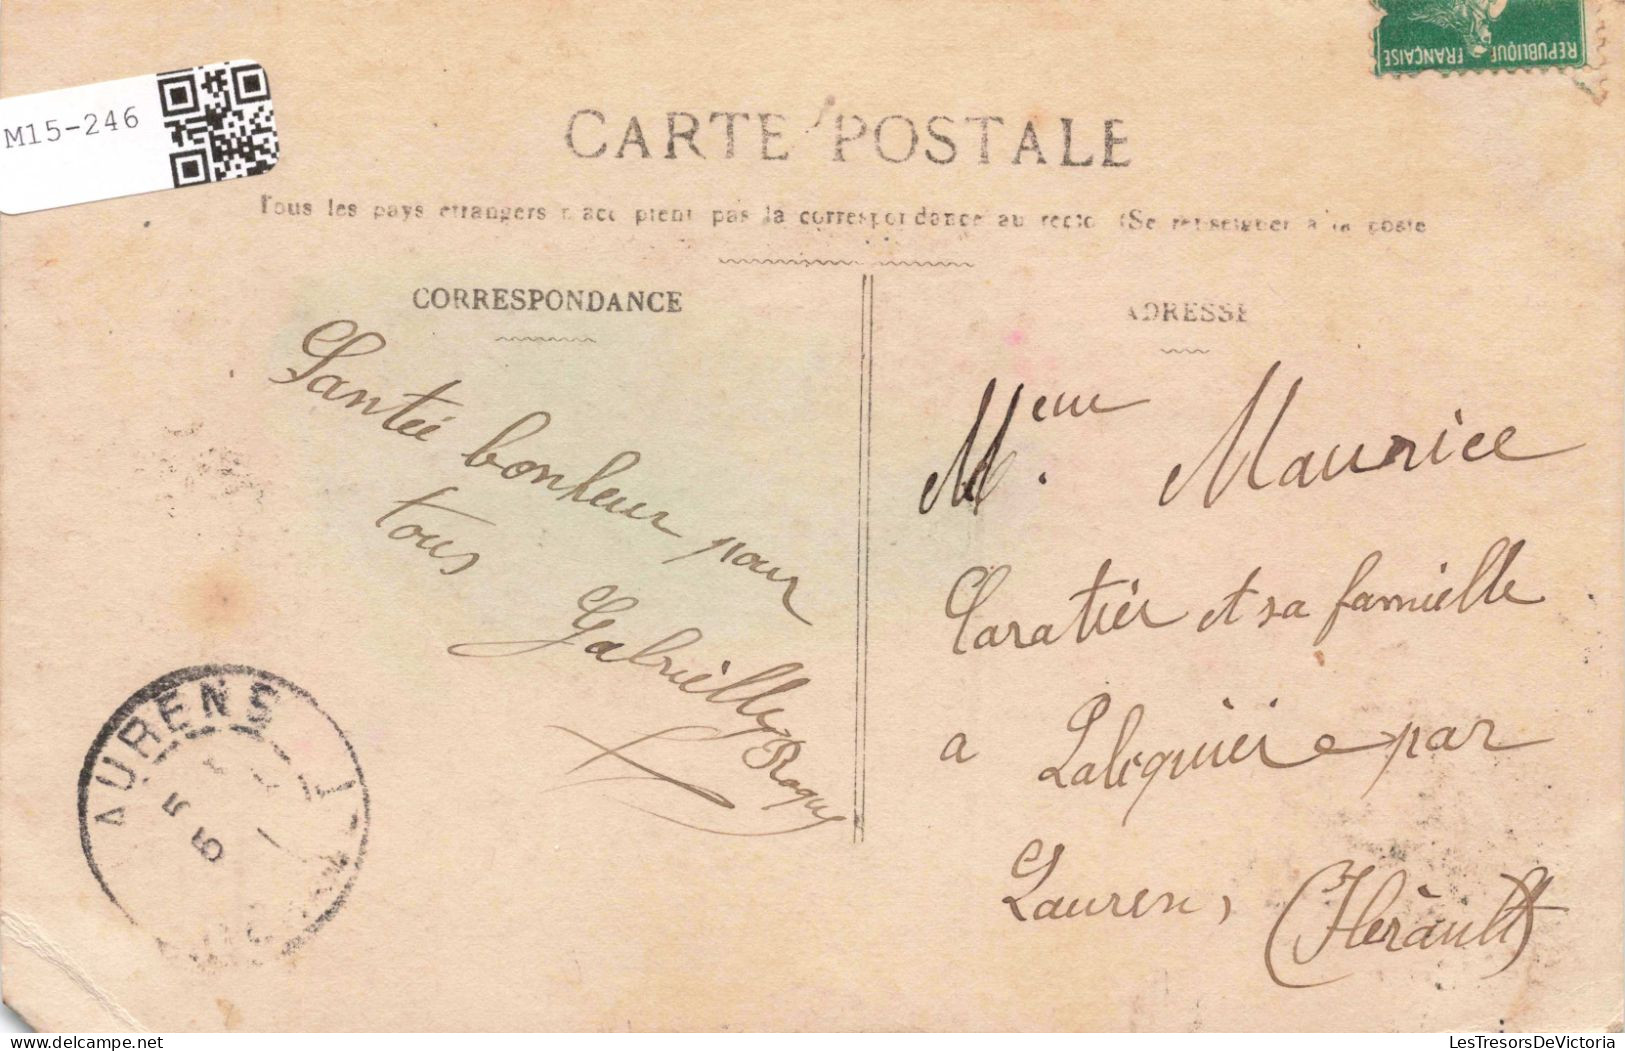 M15-246
REPUBLIQUE FRANÇAISE
CARTE POSTALE
Tous les pays etrangers n'acceptent pas la correspondance au recto (Se renseigner à la poste
CORRESPONDANCE
ADRESSE
Santée bonheur pour
tous
Gabrielle Roque
Meme. Maurice
Caratier et sa famille
a Lalequière par
Laurens, (Hérault)
LAURENS
5
5
Delcampe.net
LesTresorsDeVictoria